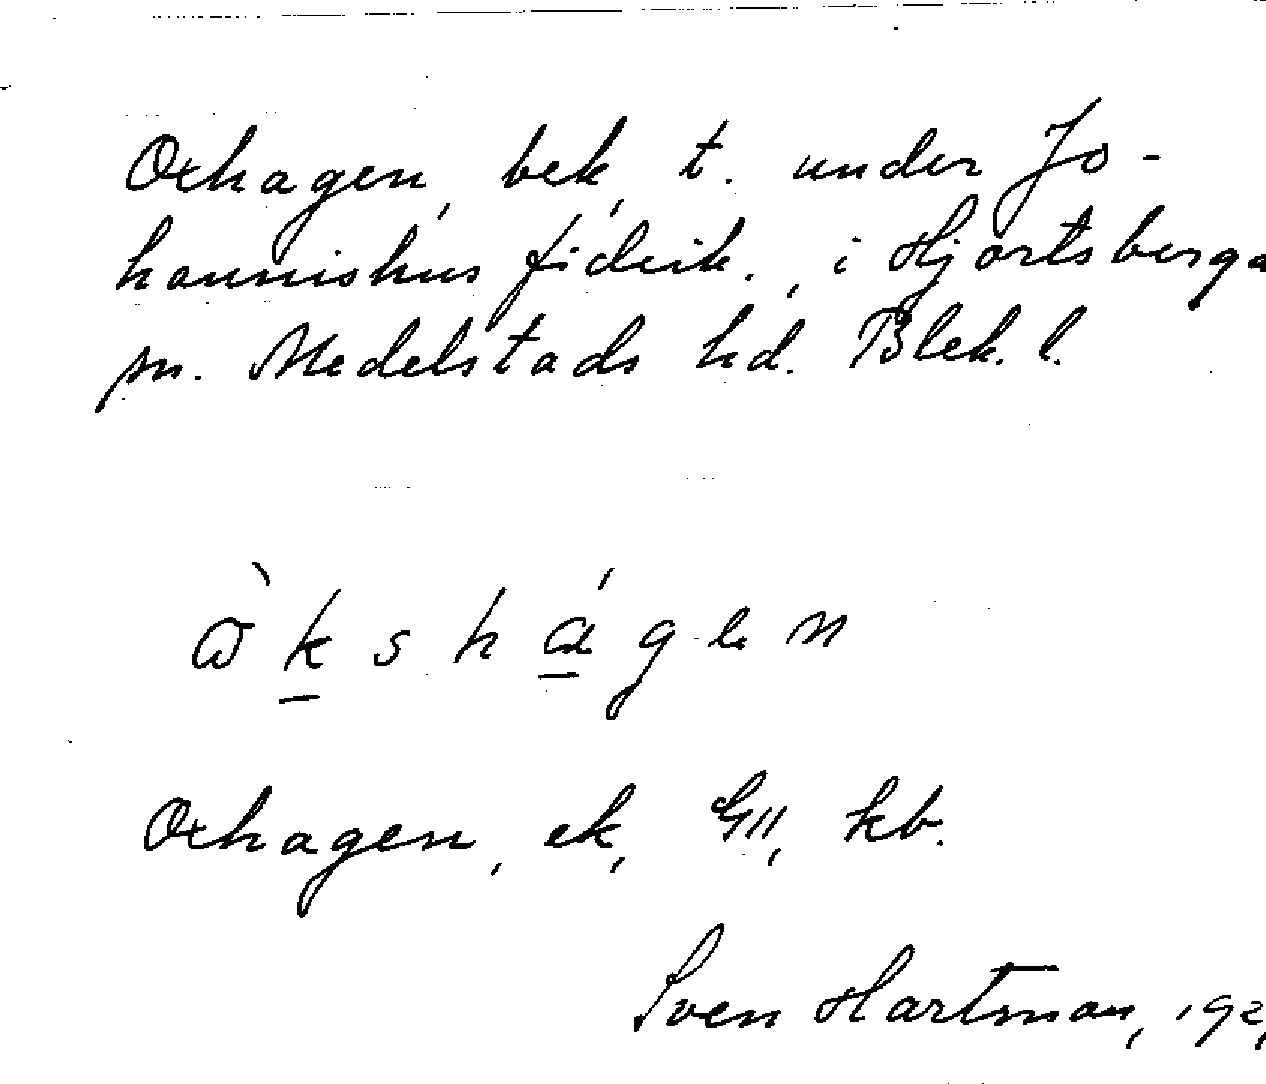 Oxhagen, bek, t. under Jo-
hannishus fideik., i Hjortsberga
sn. Medelstads hd. Blek. l.
Oxhagen, ek, GII, kb.
Sven Hartman, 192